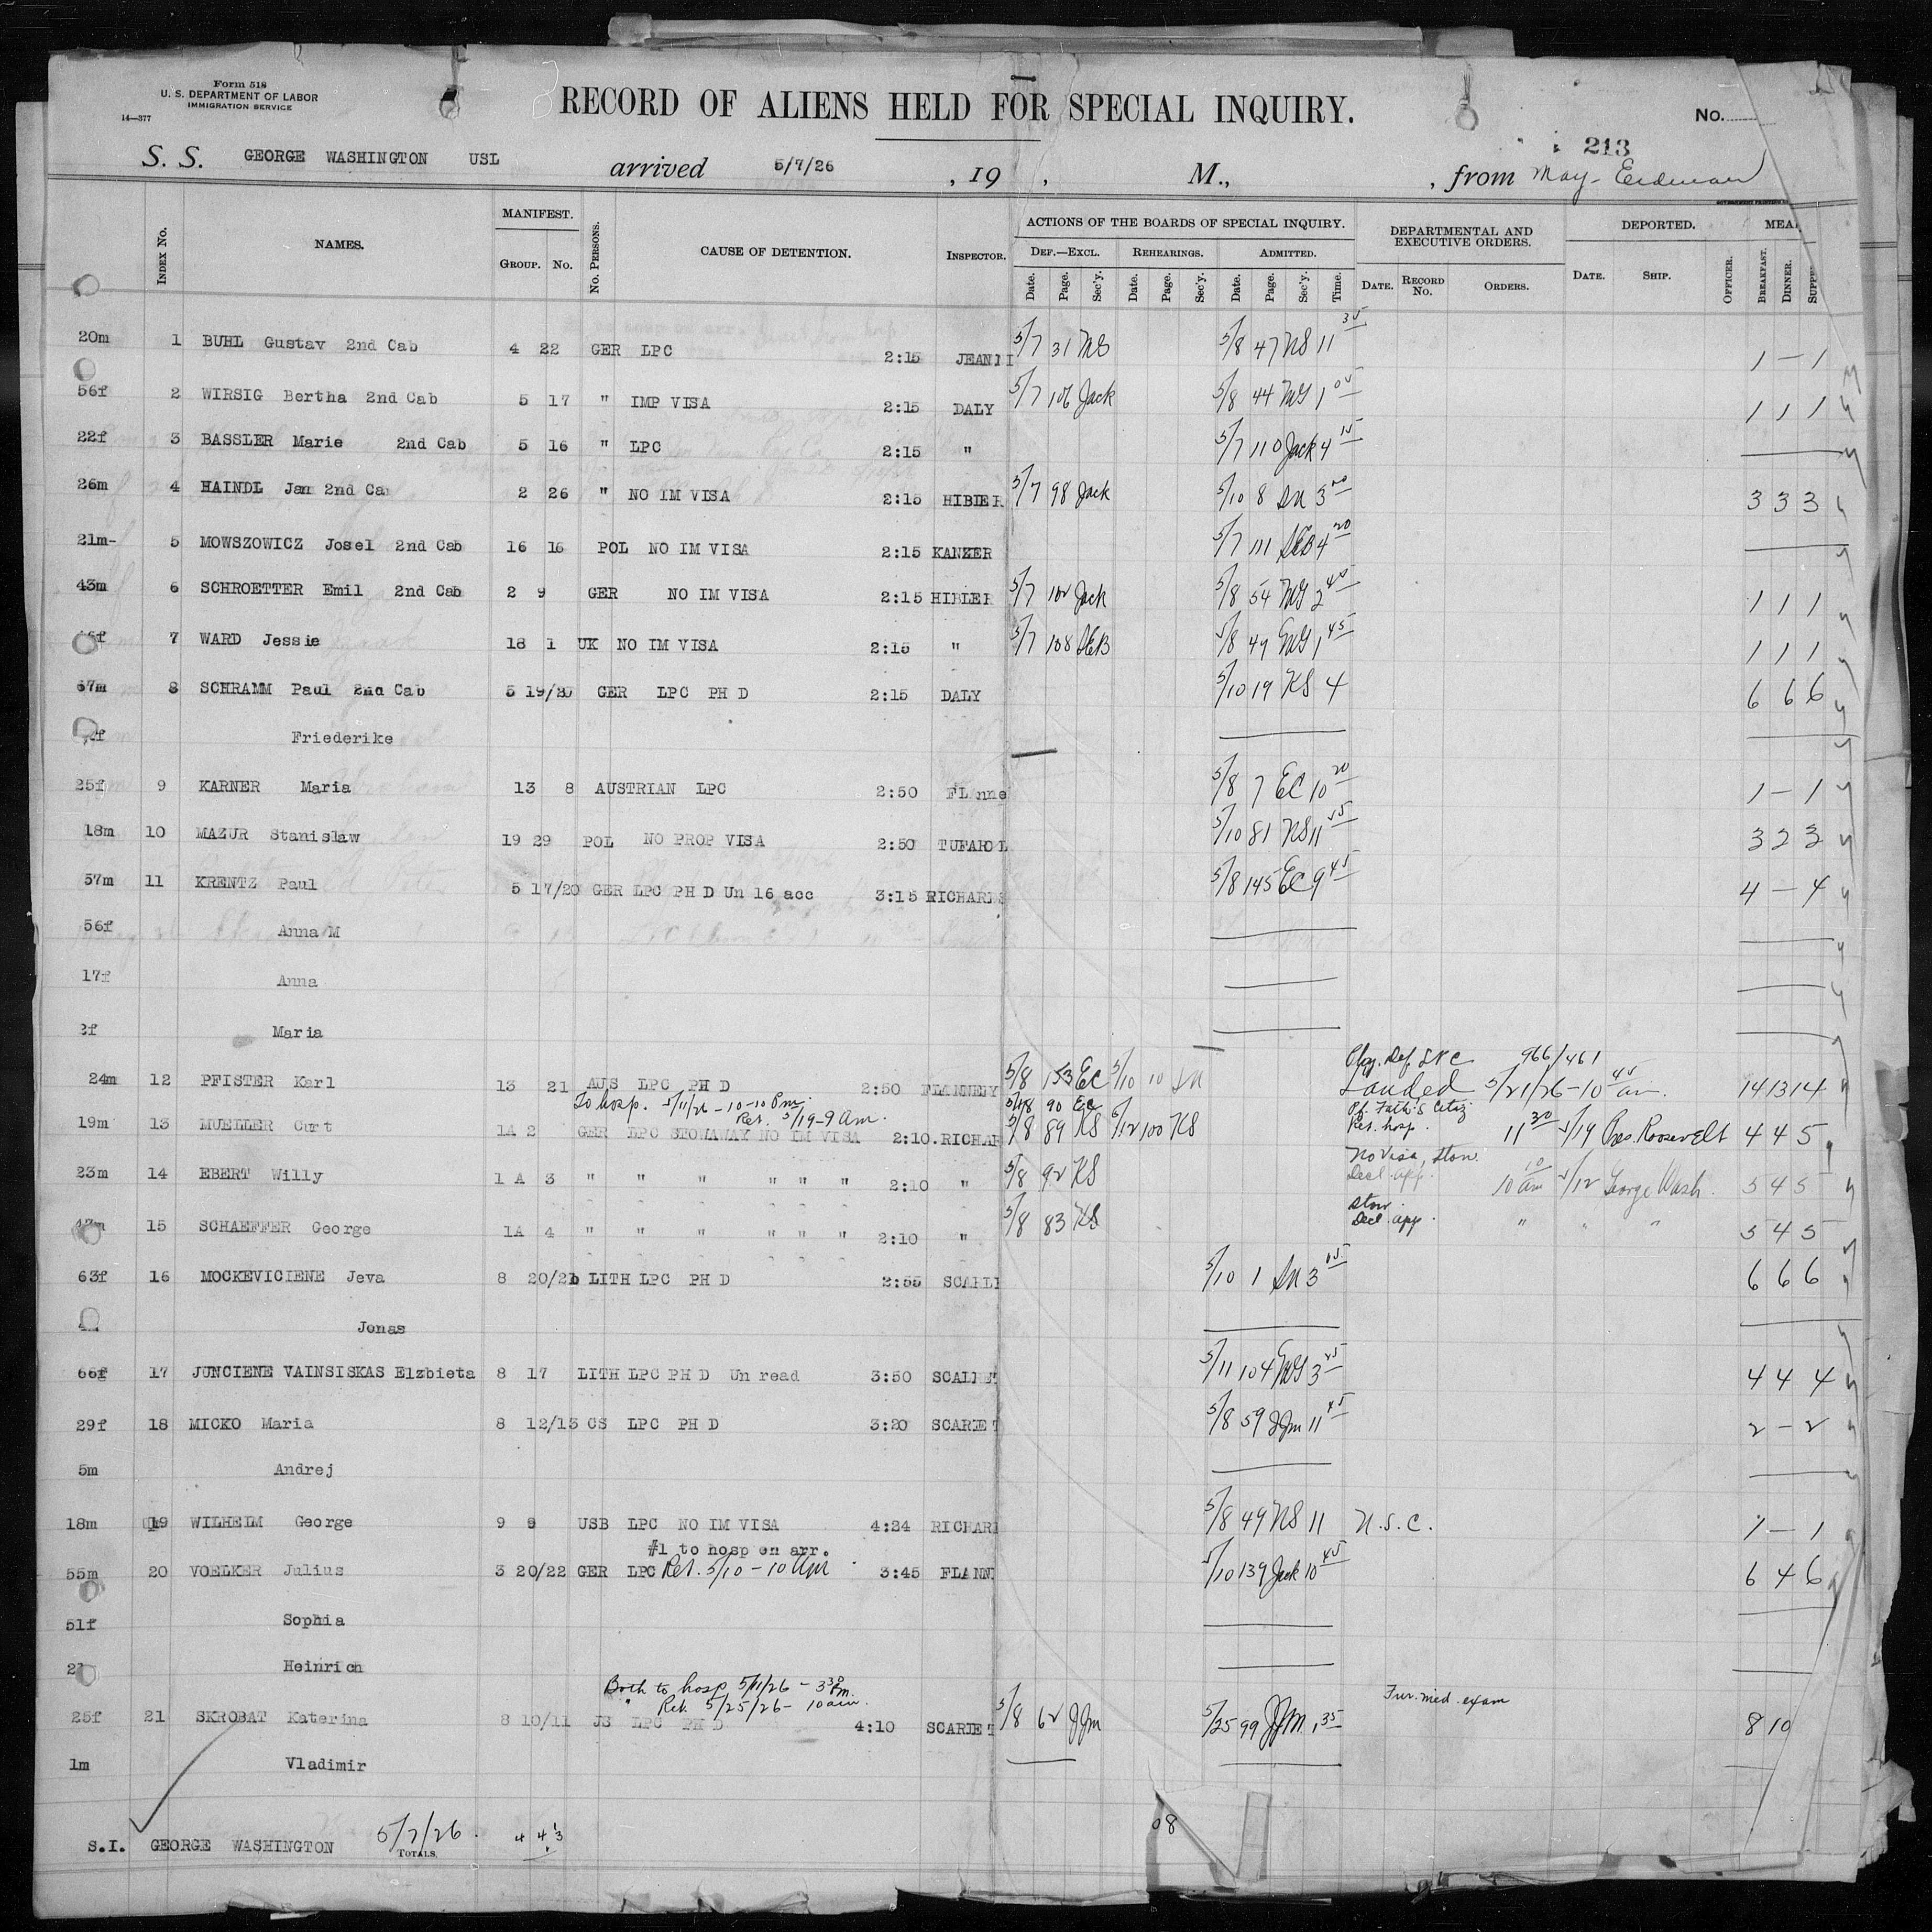 Form 518
U. S. DEPARTMENT OF LABOR
IMMIGRATION SERVICE
14—377
RECORD OF ALIENS HELD FOR SPECIAL INQUIRY.
No.
213
S. S. GEORGE WASHINGTON USL arrived 5/7/26 , 19 , M., , from May-
INDEX No. NAMES. MANIFEST. GROUP. No. No. PERSONS. CAUSE OF DETENTION. INSPECTOR. ACTIONS OF THE BOARDS OF SPECIAL INQUIRY. DEF.—EXCL. REHEARINGS. ADMITTED. DEPARTMENTAL AND EXECUTIVE ORDERS. DEPORTED.
Date. Page. Sec'y. Date. Page. Sec'y. Date. Page. Sec'y. Time. DATE. RECORD No. ORDERS. DATE. SHIP. OFFICER. BREAKFAST. DINNER.
20m 1 BUHL Gustav 2nd Cab 4 22 GER LPC 2:15 5/7 31 NS 5/8 47 NS 11 35 1 — 1
56f 2 WIRSIG Bertha 2nd Cab 5 17 " IMP VISA 2:15 DALY 5/7 106 Jack 5/8 44 MG 1 05 1 1 1
22f 3 BASSLER Marie 2nd Cab 5 16 " LPC 2:15 " 5/7 110 Jack 4 15
26m 4 HAINDL Jan 2nd Ca 2 26 " NO IM VISA 2:15 5/7 98 Jack 5/10 8 3 3 3 3
21m- 5 MOWSZOWICZ Josel 2nd Cab 16 16 POL NO IM VISA 2:15 KANZER 5/7 111 4 20
43m 6 SCHROETTER Emil 2nd Cab 2 9 GER NO IM VISA 2:15 HIBLER 5/7 102 Jack 5/8 54 MG 2 40 1 1 1
7 WARD Jessie 18 1 UK NO IM VISA 2:15 " 5/7 108 5/8 49 MG 1 45 1 1 1
67m 8 SCHRAMM Paul 2nd Cab 5 19/20 GER LPC PH D 2:15 DALY 5/10 19 KS 4 6 6 6
Friederike
25f 9 KARNER Maria 13 8 AUSTRIAN LPC 2:50 Flanne 5/8 7 EC 10 20 1 — 1
18m 10 MAZUR Stanislaw 19 29 POL NO PROP VISA 2:50 5/10 81 NS 11 3 2 3
57m 11 KRENTZ Paul 5 17/20 GER LPC PH D Un 16 acc 3:15 RICHARDS 5/8 145 EC 9 45 4 — 4
56f Anna M
17f Anna
Maria
24m 12 PFISTER Karl 13 21 AUS LPC PH D 2:50 FLANNERY 5/8 153 EC 5/10 10 966/461 Landed 5/21/26 - 10 40 am. 14 13 14
To hosp. 5/11/26 - 10-10 Pm. 90 EC
Ret. 5/19 - 9 am. Ret. hosp.
19m 13 MUELLER Curt 1A 2 GER LPC STOWAWAY NO IM VISA 2:10. RICHAR 5/8 89 KS 5/12 100 KS 11 30 5/19 Pres. Roosevelt 4 4 5
No Visa, Stow.
23m 14 EBERT Willy 1 A 3 " " " " " " 2:10 " 5/8 92 KS Decl. app. 10 10 am 5/12 George Wash. 5 4 5
Stow.
15 SCHAEFFER George 1A 4 " " " " " " 2:10 " 5/8 83 KS Decl. app. " " " 5 4 5
63f 16 MOCKEVICIENE Jeva 8 20/21 LITH LPC PH D 2:55 5/10 1 3 6 6 6
Jonas
66f 17 JUNCIENE VAINSISKAS Elzbieta 8 17 LITH LPC PH D Un read 3:50 5/11 104 MG 3 4 4 4
29f 18 MICKO Maria 8 12/13 CS LPC PH D 3:20 5/8 59 JJM 11 45 2 — 2
5m Andrej
18m 19 WILHEIM George 9 9 USB LPC NO IM VISA 4:24 RICHAR 5/8 49 NS 11 U.S.C. 1 — 1
#1 to hosp on arr.
55m 20 VOELKER Julius 3 20/22 GER LPC Ret. 5/10 - 10 Am 3:45 FLANN 5/10 139 Jack 10 45 6 4 6
51f Sophia
Heinrich
Both to hosp 5/11/26 - 3 30 Pm.
" Ret. 5/25/26 - 10 am. Fur. med. exam
25f 21 SKROBAT Katerina 8 10/11 JS LPC PH D 4:10 5/8 62 JJM 5/25 99 JJM 1 35 8 10
1m Vladimir
08
S.I. GEORGE WASHINGTON 5/7/26.
TOTALS.